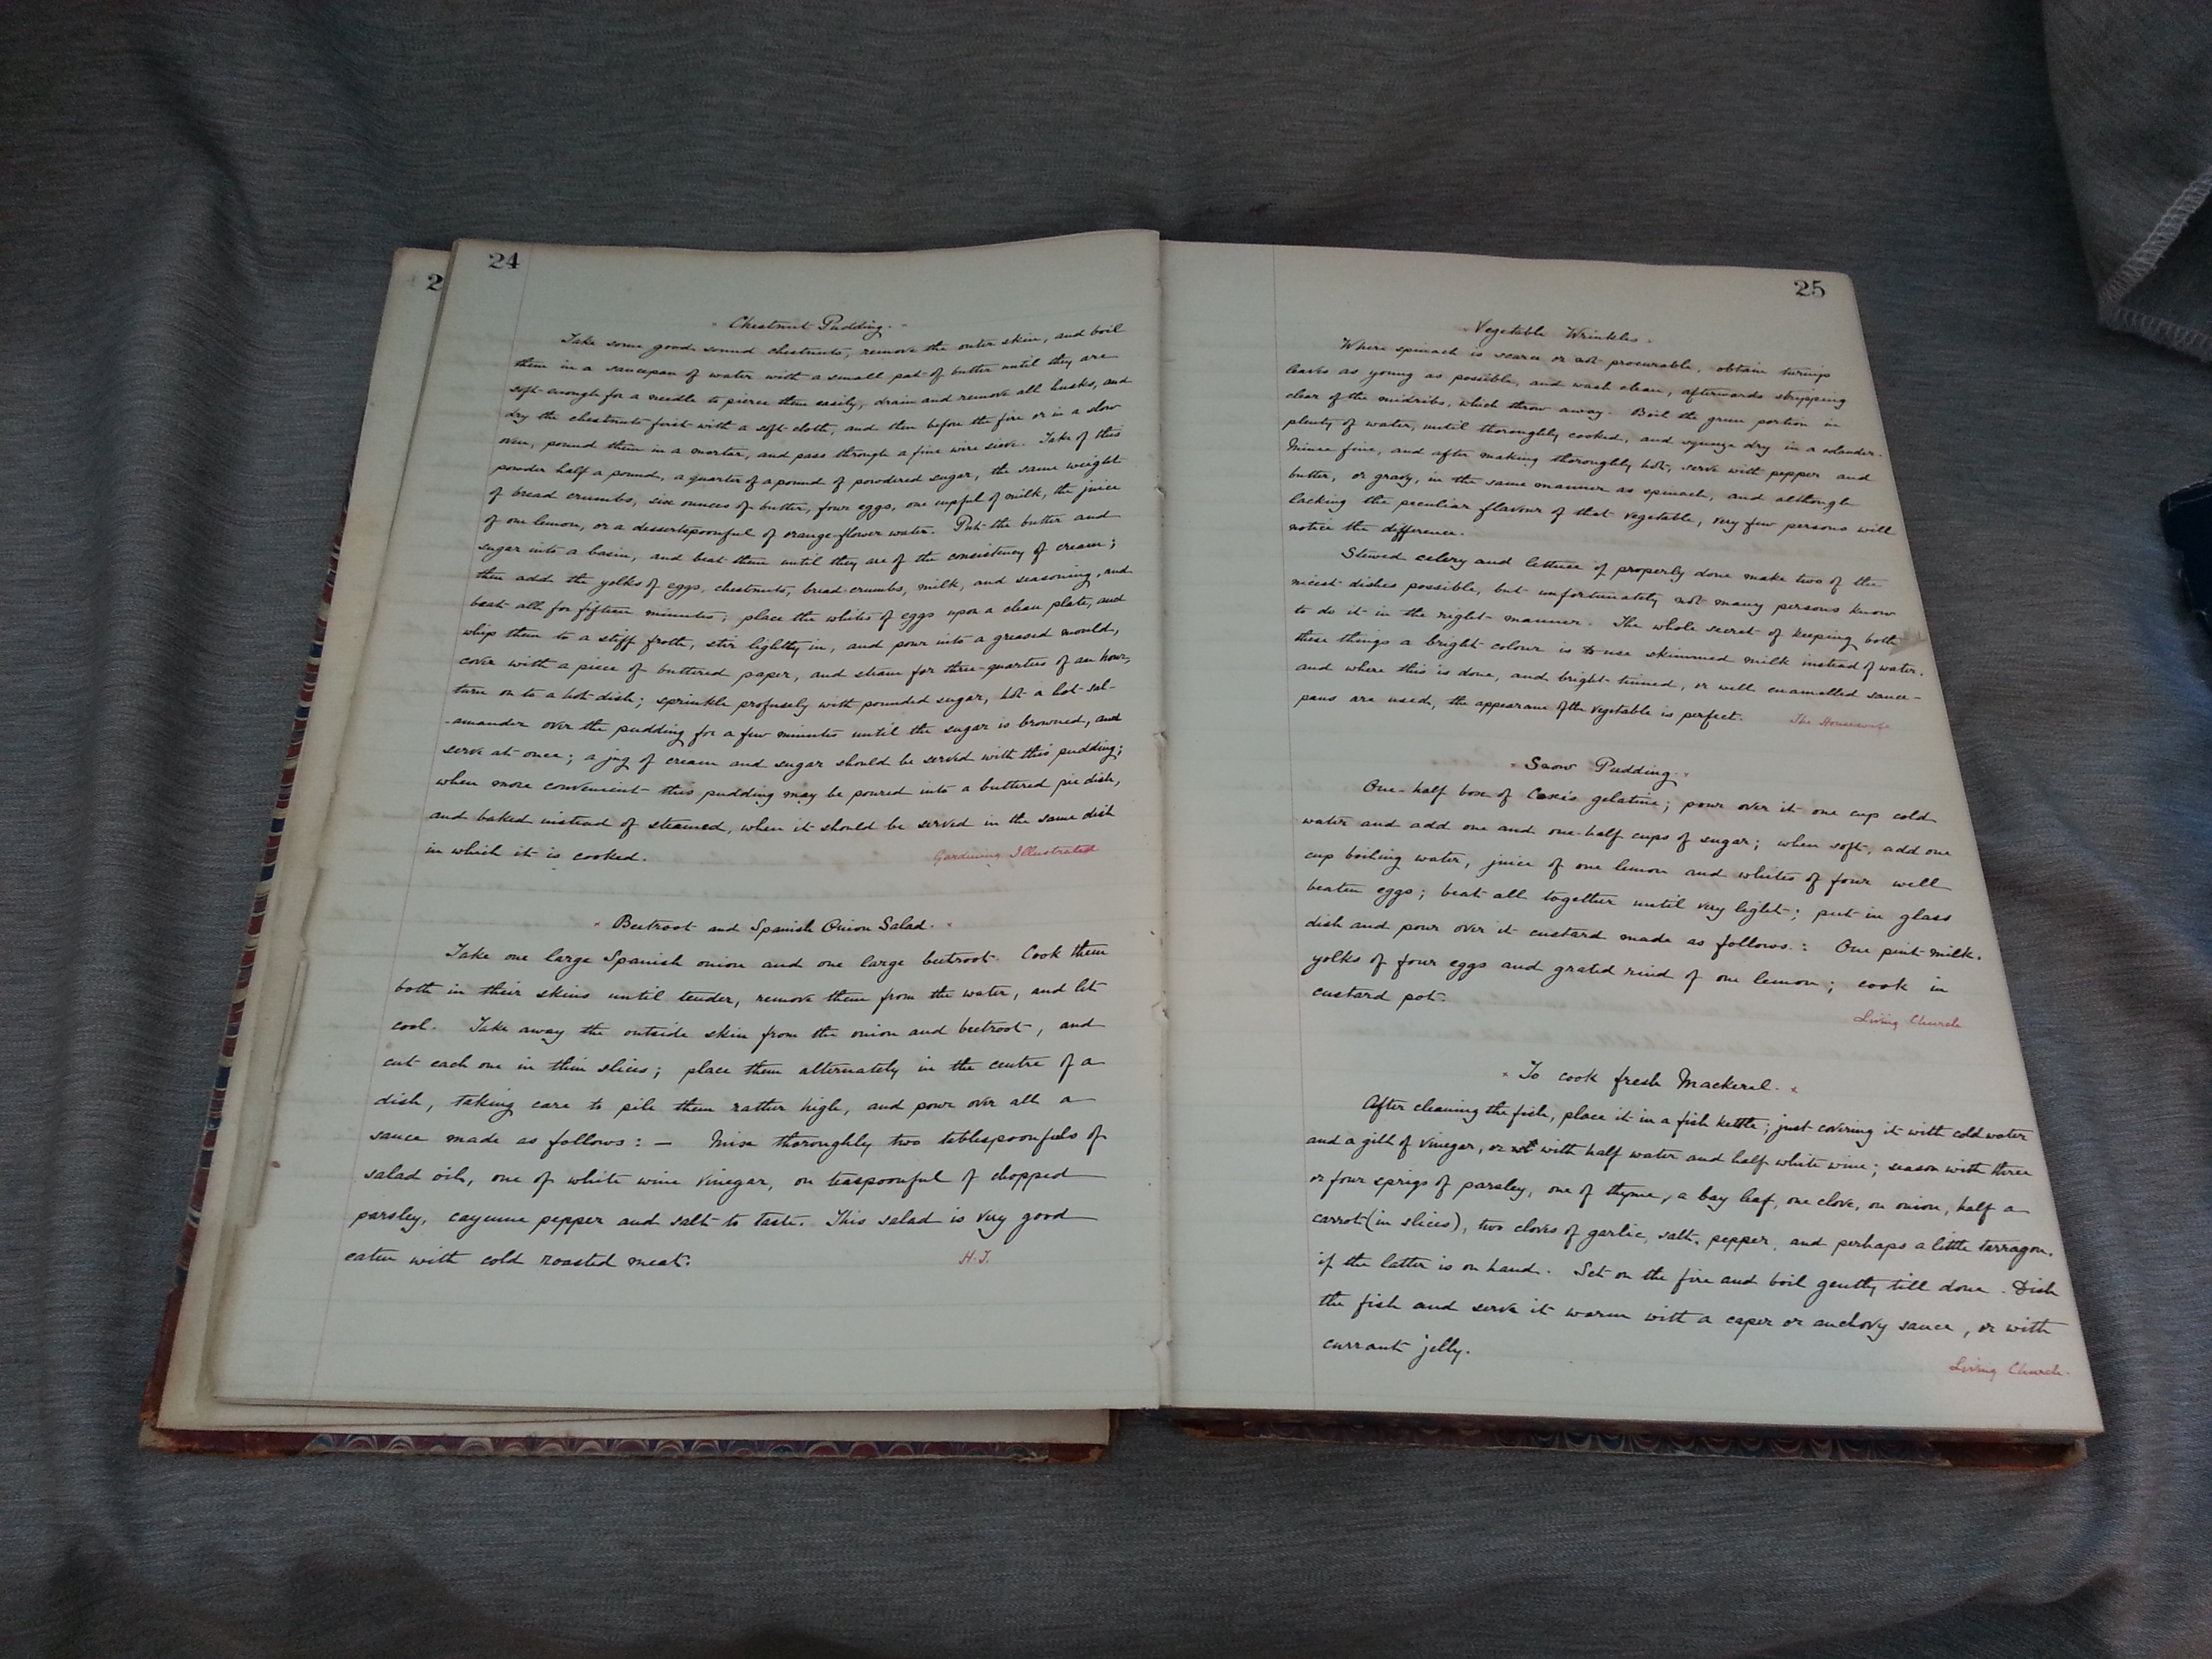 24
2
Chestnut Pudding.
Take some good sound chestnuts, remove the outer skin, and boil
them in a saucepan of water with a small pat of butter until they are
soft enough for a needle to pierce them easily, drain and remove all husks, and
dry the chestnuts first with a soft cloth, and then before the fire or in a slow
oven, pound them in a mortar, and pass through a fine wire sieve. Take of this
powder half a pound, a quarter of a pound of powdered sugar, the same weight
of bread crumbs, six ounces of butter, four eggs, one cupful of milk, the juice
of one lemon, or a dessertspoonful of orange-flower water. Put the butter and
sugar into a basin, and beat them until they are of the consistency of cream;
then add the yolks of eggs, chestnuts, bread-crumbs, milk, and seasoning, and
beat all for fifteen minutes; place the whites of eggs upon a clean plate, and
whip them to a stiff froth, stir lightly in, and pour into a greased mould,
cover with a piece of buttered paper, and steam for three-quarters of an hour,
turn on to a hot dish; sprinkle profusely with pounded sugar, hold a hot sal-
-amander over the pudding for a few minutes until the sugar is browned, and
serve at once; a jug of cream and sugar should be served with this pudding;
when more convenient this pudding may be poured into a buttered pie dish,
and baked instead of steamed, when it should be served in the same dish
in which it is cooked. Gardening Illustrated
Beetroot and Spanish Onion Salad.
Take one large Spanish onion and one large beetroot. Cook them
both in their skins until tender, remove them from the water, and let
cool. Take away the outside skin from the onion and beetroot, and
cut each one in thin slices; place them alternately in the centre of a
dish, taking care to pile them rather high, and pour over all a
sauce made as follows: — Mix thoroughly two tablespoonfuls of
salad oil, one of white wine vinegar, on teaspoonful of chopped
parsley, cayenne pepper and salt to taste. This salad is very good
eaten with cold roasted meat. H.J.
25
Vegetable Wrinkles.
Where spinach is scarce or not procurable, obtain turnips
leaves as young as possible, and wash clean, afterwards stripping
clear of the midribs, which throw away. Boil the green portion in
plenty of water, until thoroughly cooked, and squeeze dry in a colander.
Mince fine, and after making thoroughly hot, serve with pepper and
butter, or gravy, in the same manner as spinach, and although
lacking the peculiar flavour of that vegetable, very few persons will
notice the difference.
Stewed celery and lettuce if properly done make two of the
nicest dishes possible, but unfortunately not many persons know
to do it in the right manner. The whole secret of keeping both
these things a bright colour is to use skimmed milk instead of water.
and where this is done, and bright tinned, or well enamelled sauce-
pans are used, the appearance of the vegetable is perfect. The Housewife
Snow Pudding.
One-half box of Coxe's gelatine; pour over it one cup cold
water and add one and one-half cups of sugar; when soft, add one
cup boiling water, juice of one lemon and whites of four well
beaten eggs; beat all together until very light; put in glass
dish and pour over it custard made as follows: One pint milk.
yolks of four eggs and grated rind of one lemon; cook in
custard pot.
Living Church
To cook fresh Mackerel.
After cleaning the fish, place it in a fish kettle; just covering it with cold water
and a gill of vinegar, or with half water and half white wine; season with three
or four sprigs of parsley, one of thyme, a bay leaf, one clove, on onion, half a
carrot (in slices), two cloves of garlic, salt, pepper, and perhaps a little tarragon.
if the latter is on hand. Set on the fire and boil gently till done. Dish
the fish and serve it warm with a caper or anchovy sauce, or with
currant jelly.
Living Church.